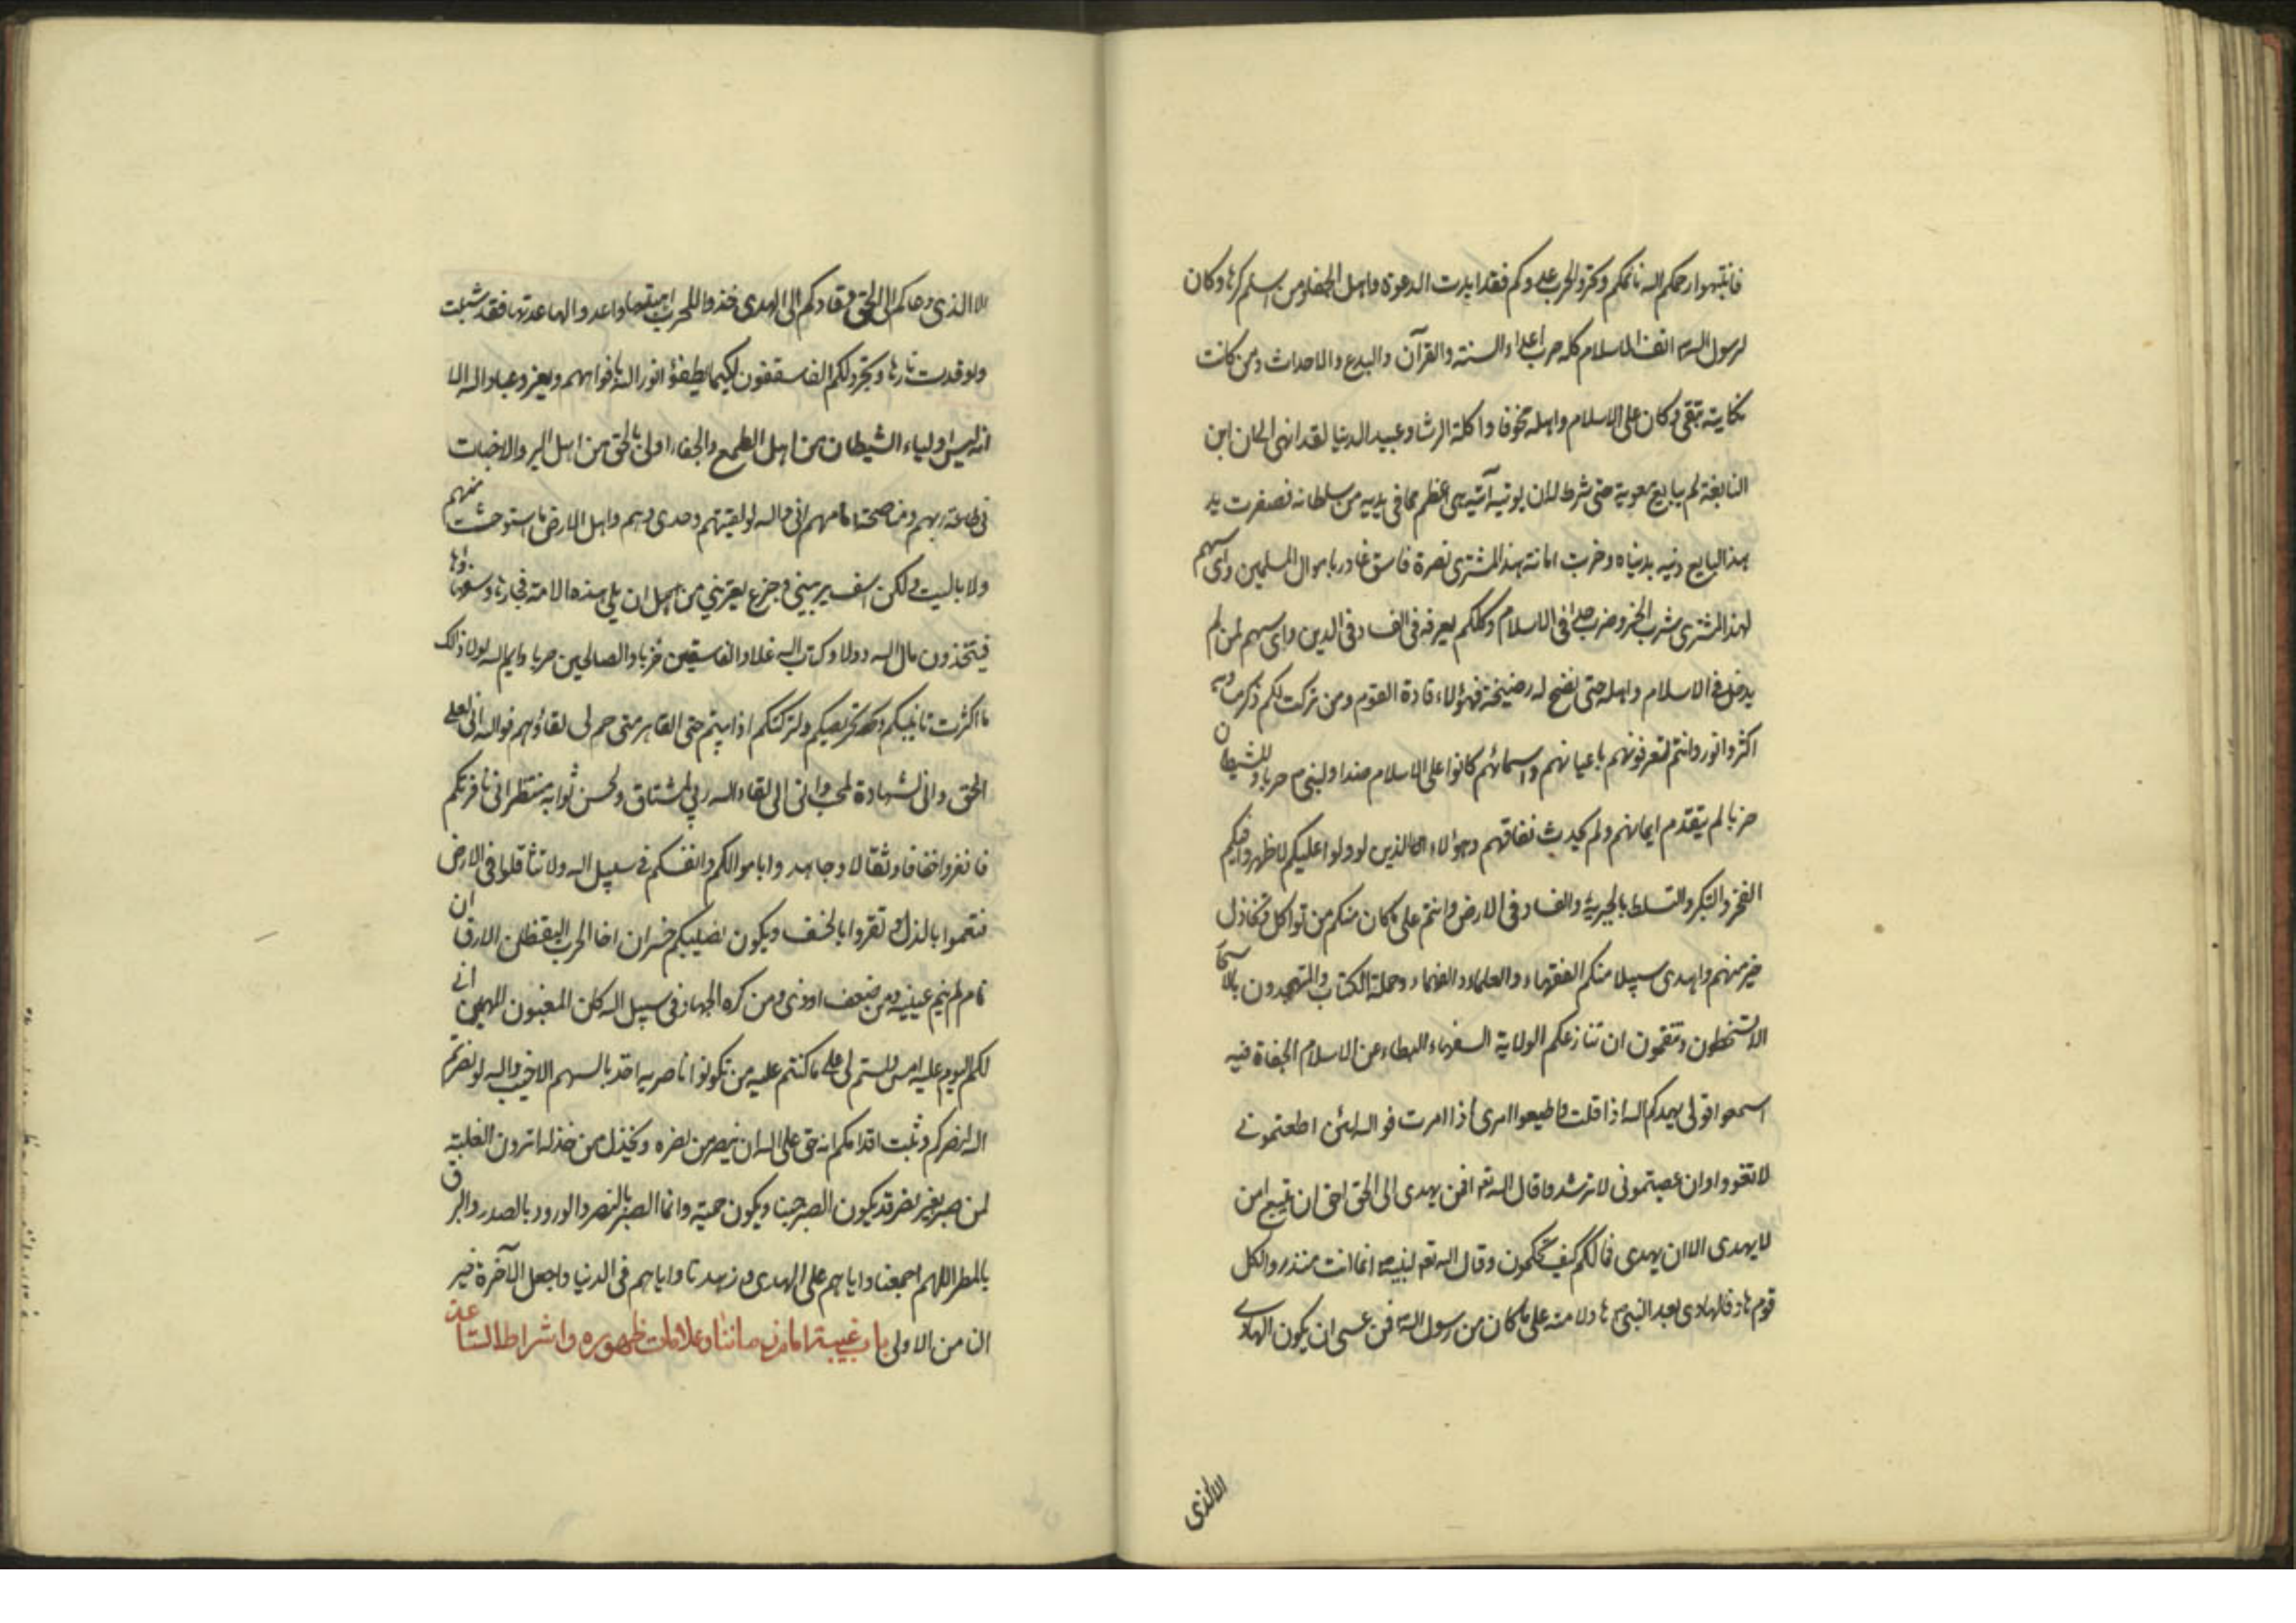 فانتبهوا رحمكم الله نائمكم وتحرزوا لحرب عدوكم فقد ابدت الدعوة واهل الجفاء ومن اسلم كرها وكان
لرسول الله انف الاسلام كله حربا اعداء السنة والقرآن والبدع والاحداث ومن كانت
نكايته تتقى وكان على الاسلام واهله مخوفا واكلة الرشا وعبيد الدنيا لقد انهى الى ان ابن
النابغة لم يبايع معوية حتى شرط له ان يوتيه آتية هى اعظم مما فى يديه من سلطانه فصفرت يد
هذا البايع دينه بدنياه وخربت امانة هذا المشترى نصرة فاسق غادر باموال المسلمين واى سهم
لهذا المشترى شرب الخمر وضرب حدا فى الاسلام وكلكم يعرفه فى الفساد فى الدين واى سهم لمن لم
يدخل فى الاسلام واهله حتى نضح له رضيخة فهؤلاء قادة القوم ومن تركت لكم ذكر مساويه
اكثر وانور وانتم تعرفونهم باعيانهم واسمائهم كانوا على الاسلام ضدا ولنبى ص حربا وللشيطان
حزبا لم يتقدم ايمانهم ولم يحدث نفاقهم وهؤلاء الذين لو ولوا عليكم لاظهروا فيكم
الفخر والتكبر والتسلط بالجبرية والفساد فى الارض وانتم على ما كان منكم من تواكل وتخاذل
خير منهم واهدى سبيلا منكم الفقهاء والعلماء والفهماء وحملة الكتاب والمتهجدون بالاسحار
الا تسخطون وتنقمون ان تنازعكم الولاية السفهاء البطاء عن الاسلام الجفاة فيه
اسمعوا قولى يهدكم الله اذا قلت واطيعوا امرى اذا امرت فوالله لئن اطعتمونى
لا تغووا وان عصيتمونى لا ترشدوا قال الله تعم افمن يهدى الى الحق احق ان يتبع امن
لا يهدى الا ان يهدى فما لكم كيف تحكمون وقال الله تعم لنبيه انما انت منذر ولكل
قوم هاد فالهادى بعد النبى ص هاد لامته على ما كان من رسول الله فمن عسى ان يكون الهادى
الا الذى
الا الذى دعاكم الى الحق وقادكم الى الهدى خذوا للحرب اهبتها واعدوا لها عدتها فقد شبت
واوقدت نارها وتجرد لكم الفاسقون لكيما يطفؤا نور الله بافواههم ويغزوا عباد الله الا
انه ليس اولياء الشيطان من اهل الطمع والجفاء اولى بالحق من اهل البر والاخبات
فى طاعة ربهم ومناصحة امامهم انى والله لو لقيتهم وحدى وهم واهل الارض ما استوحشت منهم
ولا باليت ولكن اسف يريبنى وجزع يعترينى من اجل ان يلى هذه الامة فجارها وسفهاؤها
فيتخذون مال الله دولا وكتاب الله دغلا والفاسقين حزبا والصالحين حربا وايم الله لولا ذلك
ما اكثرت تانيبكم وتحريصكم ولتركتكم اذا ابيتم حتى القاهم متى حم لى لقاؤهم فوالله انى لعلى
الحق وانى للشهادة لمحب وانى الى لقاء الله ربى لمشتاق ولحسن ثوابه منتظر انى نافر بكم
فانفروا خفافا وثقالا وجاهدوا باموالكم وانفسكم فى سبيل الله ولا تثاقلوا فى الارض
فتعموا بالذل وتقروا بالخسف ويكون نصيبكم خسران اخا الحرب اليقظان الارق ان
نام لم ينم عينيه ومن ضعف اودى ومن كره الجهاد فى سبيل الله كان المغبون المهين انى
لكم اليوم على ما كنت عليه امس ولستم لى على ما كنتم عليه من تكونوا ناصريه اخذ بالسهم الاخيب والله لو نصرتم
الله لنصركم وثبت اقدامكم انه حق على الله ان ينصر من نصره ويخذل من خذله اترون الغلبة
لمن صبر بغير نصر قد يكون الصبر جبنا ويكون حمية وانما الصبر بالنصر والورود بالصدر والبرق
بالمطر اللهم اجمعنا واياهم على الهدى وزهدنا واياهم فى الدنيا واجعل الآخرة خير
لنا من الاولى باب غيبة امام زماننا وعلامات ظهوره واشراط الساعة